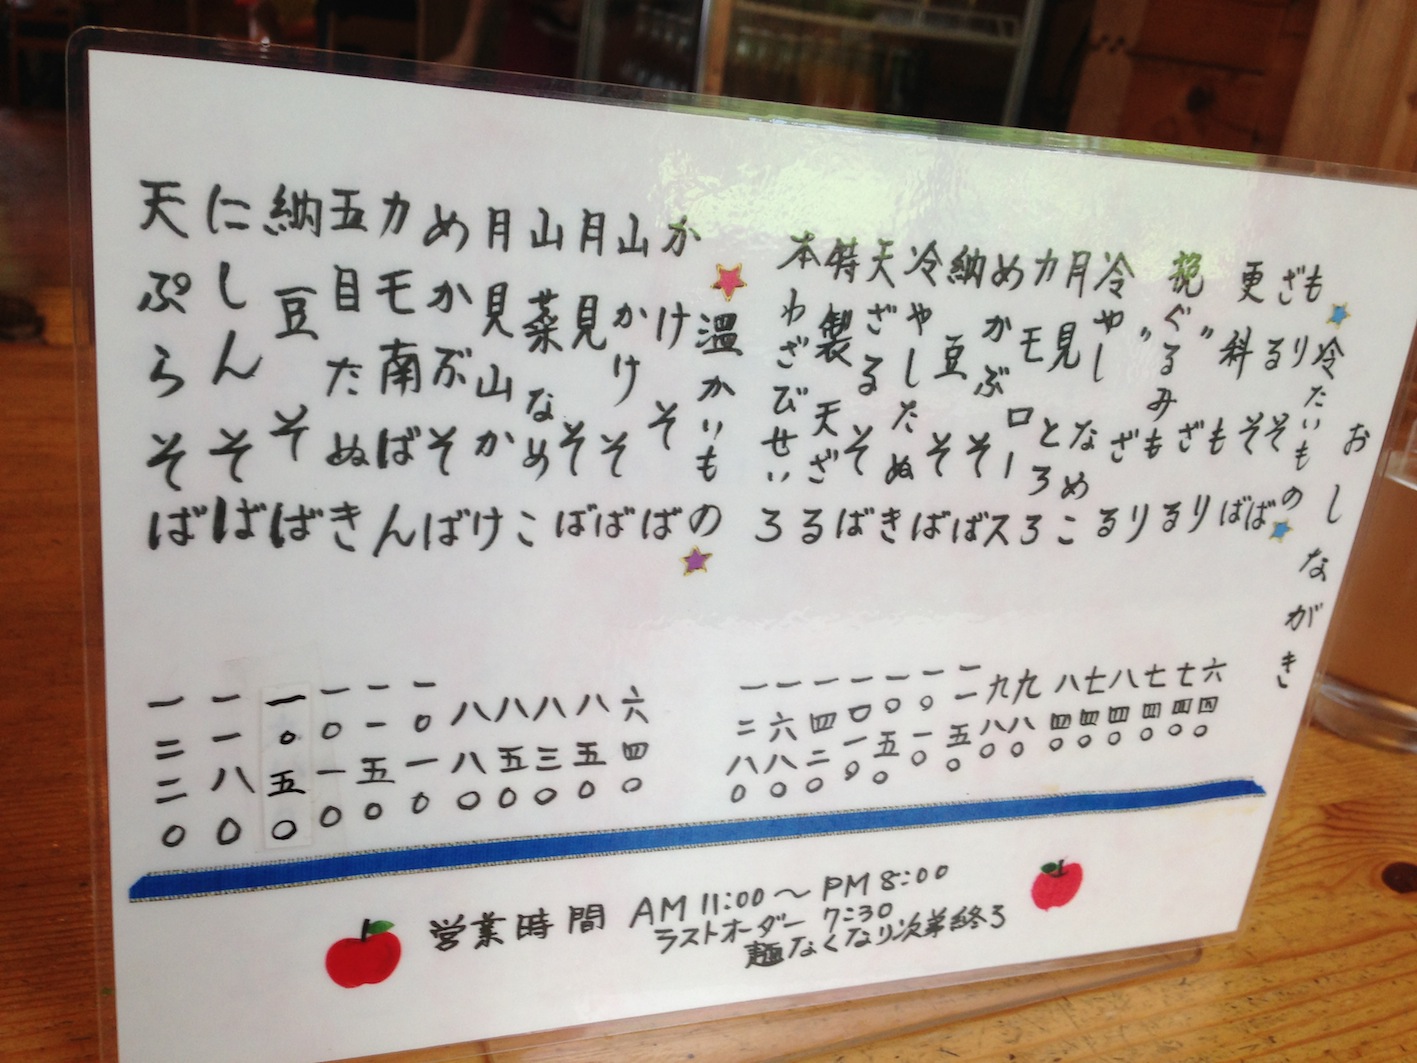 おしながき
冷たいもの
もりそば 六四〇
ざるそば 七四〇
更科もり 七四〇
〃ざる 八四〇
挽ぐるみもり 七四〇
〃ざる 八四〇
冷やしなめこ 九八〇
月見とろろ 九八〇
カモロース 一一五〇
めかぶそば 一〇一〇
納豆そば 一〇五〇
冷やしたぬき 一〇一〇
天ざるそば 一四二〇
特製天ざる 一六八〇
本わざびせいろ 一二八〇
温かいもの
かけそば 六四〇
山かけそば 八五〇
月見そば 八三〇
山菜なめこ 八五〇
月見山かけ 八八〇
めかぶそば 一〇一〇
カモ南ばん 一一五〇
五目たぬき 一〇一〇
納豆そば 一〇五〇
にしんそば 一一八〇
天ぷらそば 一三二〇
営業時間 AM 11:00〜PM 8:00
ラストオーダー 7:30
麺なくなり次第終ろ